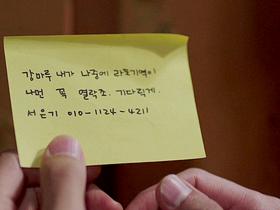 강마루 내가 나중에 라도기억이
나면 꼭 연락죠. 기다릴게.
서은기 010-1124-4211